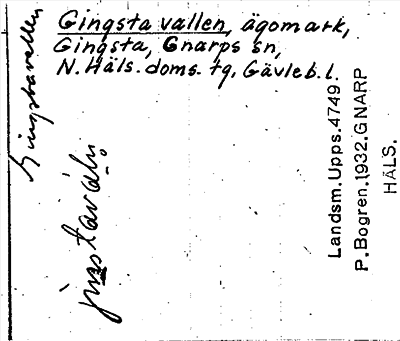 Gingsta vallen, ägomark,
Gingsta, Gnarps sn,
N. Häls. doms. tg. Gävleb. l.
Gingstavallen
Landsm. Upps. 4749
P. Bogren. 1932. GNARP
HÄLS.